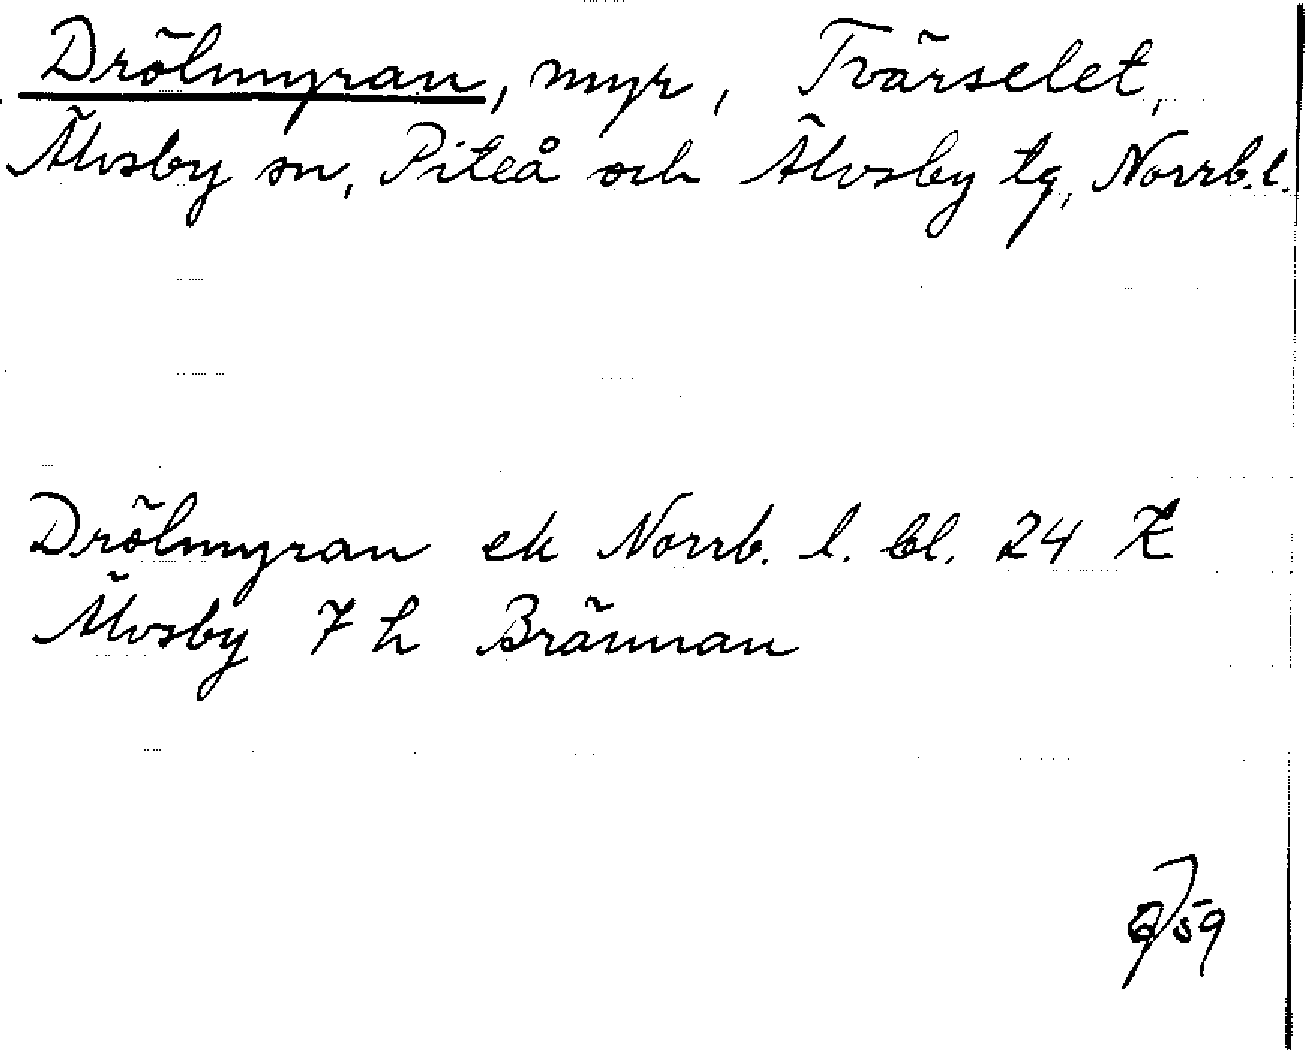 Drölmyran, myr, Tvärselet,
Älvsby sn, Piteå och Älvsby tg, Norrb.l.
Drölmyran ek Norrb. l. bl. 24 K
Älvsby 7 h Brännan